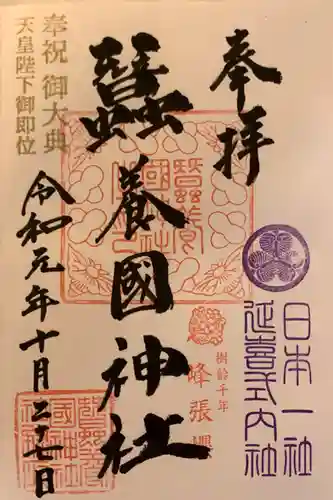 奉拝
日本一社
延喜式内社
樹齢千年
峰張桜
蠶養國神社
奉祝 御大典
天皇陛下御即位
令和元年十月二十七日